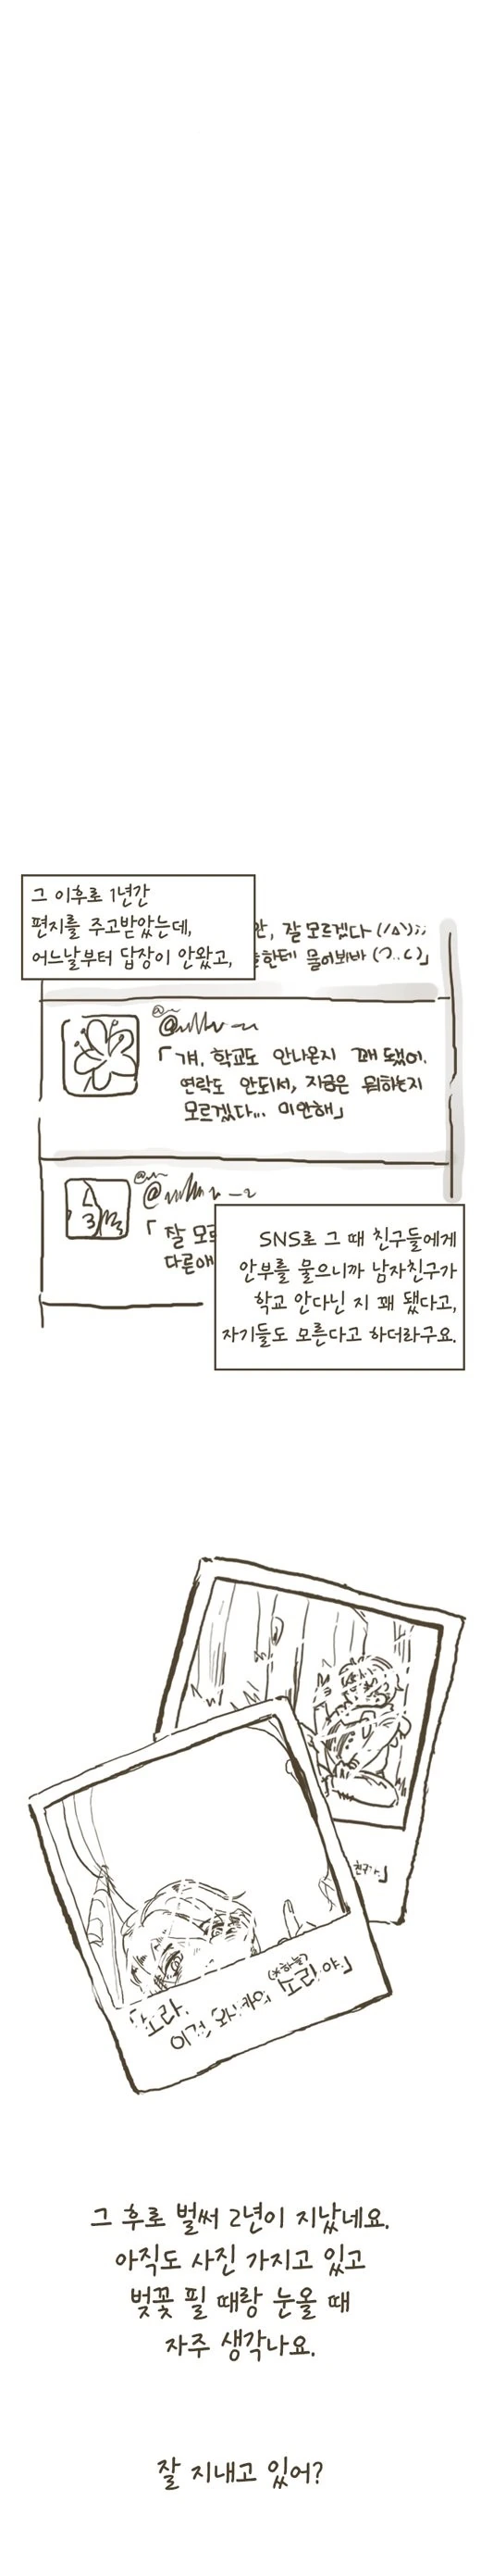 그 이후로 1년간
편지를 주고받았는데,
어느날부터 답장이 안왔고,
잘모르겠다 (/△\);;
한테 물어봐바
「걔, 학교도 안나온지 꽤 됐어.
연락도 안되서, 지금은 뭐하는지
모르겠다... 미안해」
「잘 모르
다른애
SNS로 그 때 친구들에게
안부를 물으니까 남자친구가
학교 안다닌 지 꽤 됐다고,
자기들도 모른다고 하더라구요.
친구가」
소라,
이건
(*하늘)
소라야」
그 후로 벌써 2년이 지났네요.
아직도 사진 가지고 있고
벚꽃 필 때랑 눈올 때
자주 생각나요.
잘 지내고 있어?